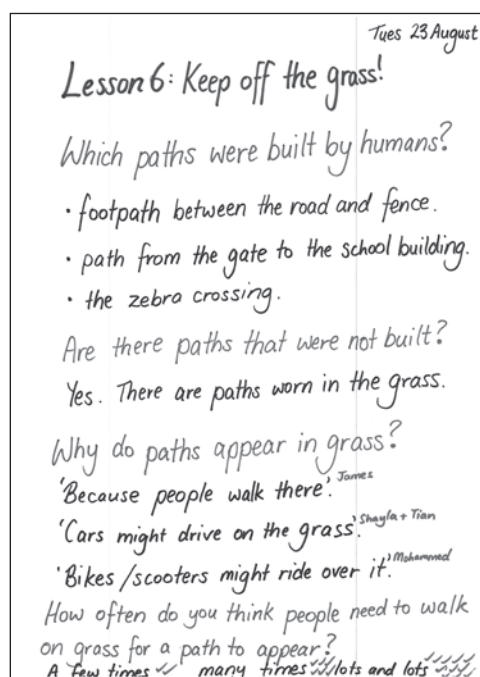 Tues 23 August
Lesson 6: Keep off the grass!
Which paths were built by humans?
• footpath between the road and fence.
• path from the gate to the school building.
• the zebra crossing.
Are there paths that were not built?
Yes. There are paths worn in the grass.
Why do paths appear in grass?
'Because people walk there'. James
'Cars might drive on the grass'. Shayla + Tian
'Bikes/scooters might ride over it'. Mohammed
How often do you think people need to walk
on grass for a path to appear?
A few times ✓✓ many times ✓✓✓✓✓ lots and lots ✓✓✓✓✓✓✓✓